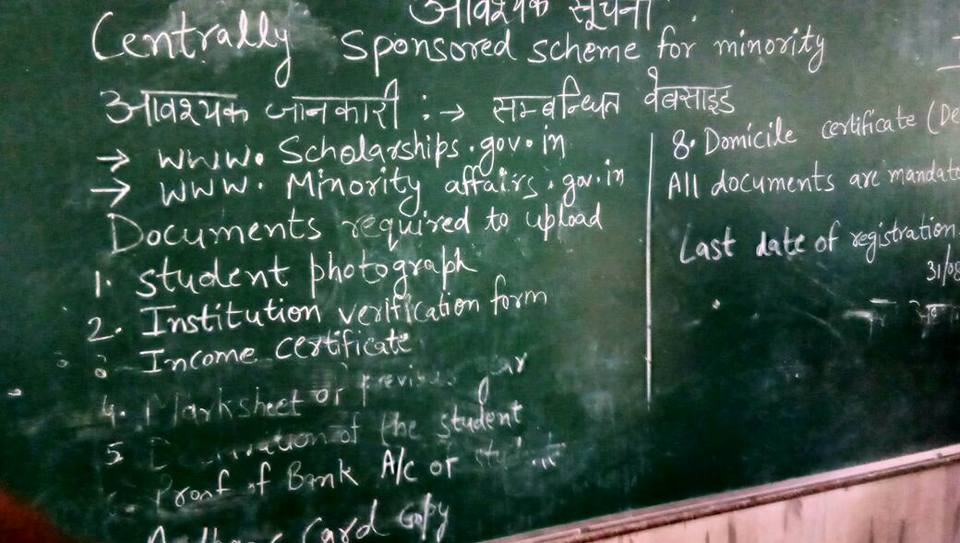 आवश्यक सूचना
Centrally Sponsored scheme for minority
आवश्यक जानकारी :→ सम्बन्धित वेबसाइड
→ www. Scholarships.gov.in
→ www. Minority affairs.gov.in
Documents required to upload
1. student photograph
2. Institution verification form
Income certificate
4. Marksheet of previous year
5 of the student
Proof of Bank A/c or
Card Copy
8. Domicile certificate (De
All documents are mandato
Last date of registration
31/08